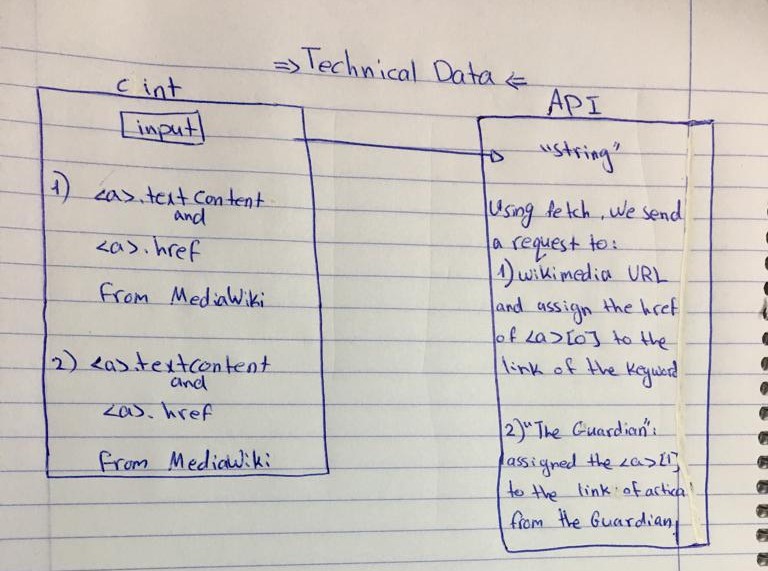 ⇒ Technical Data ⇐
c int
input
1) <a>.textContent
and
<a>.href
From MediaWiki
2) <a>.textcontent
and
<a>.href
From MediaWiki
API
"string"
Using fetch, we send
a request to:
1) wikimedia URL
and assign the href
of <a>[0] to the
link of the keyword
2) "The Guardian":
assigned the <a>[1]
to the link of artica
from the Guardian.